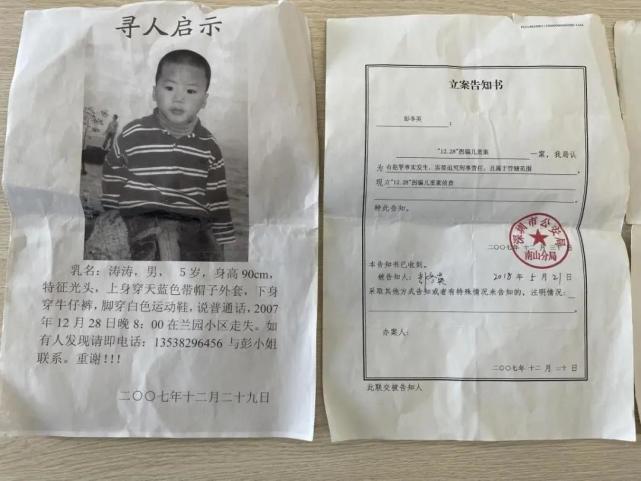 寻人启示
乳名：涛涛，男， 5岁，身高90cm，
特征光头，上身穿天蓝色带帽子外套，下身
穿牛仔裤，脚穿白色运动鞋，说普通话，2007
年12月28日晚8：00在兰园小区走失。如
有人发现请即电话：13538296456与彭小姐
联系。重谢!!!
二〇〇七年十二月二十九日
立案告知书
彭冬英：
“12.28”拐骗儿童案 一案，我局认
为 有犯罪事实发生，需要追究刑事责任，且属于管辖范围
现立“12.28”拐骗儿童案侦查
特此告知。
深圳市公安局
南山分局
二〇〇七年十二月三十日
本告知书已收到。
被告知人：彭冬英 2018年5月21日
采取其他方式告知或者有特殊情况未告知的，注明情况：
办案人：
二〇〇七年十二月三十日
此联交被告知人